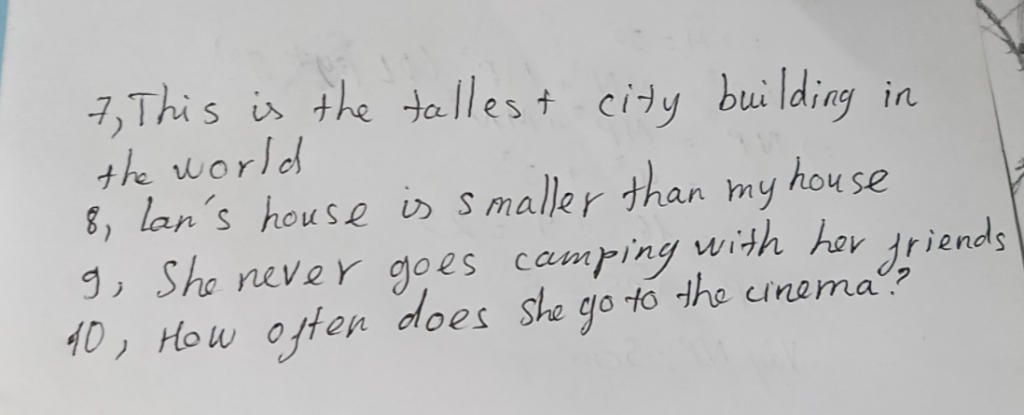 7, This is the tallest city building in
the world
8, lan's house is smaller than my house
9, She never goes camping with her friends
10, How often does she go to the cinema?